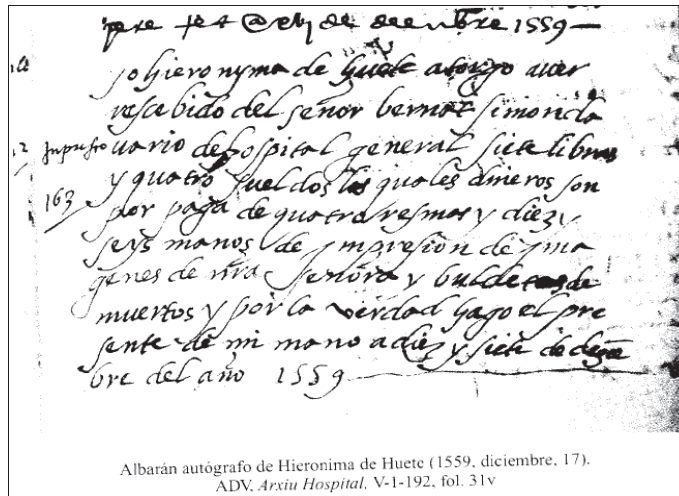 de deembre 1559
yo hieronyma de huete atorgo aver
rescebido del señor bernat simon cla
Inpresso vario del hospital general siete libras
163 y quatro sueldos los quales dineros son
por paga de quatro resmas y diez y
seys manos de impresion de yma
genes de nra señora y buldetas de
muertos y por la verdad hago el pre
sente de mi mano a diez y siete de dezie
bre del año 1559
Albarán autógrafo de Hieronima de Huete (1559, diciembre, 17).
ADV, Arxiu Hospital, V-1-192, fol. 31v